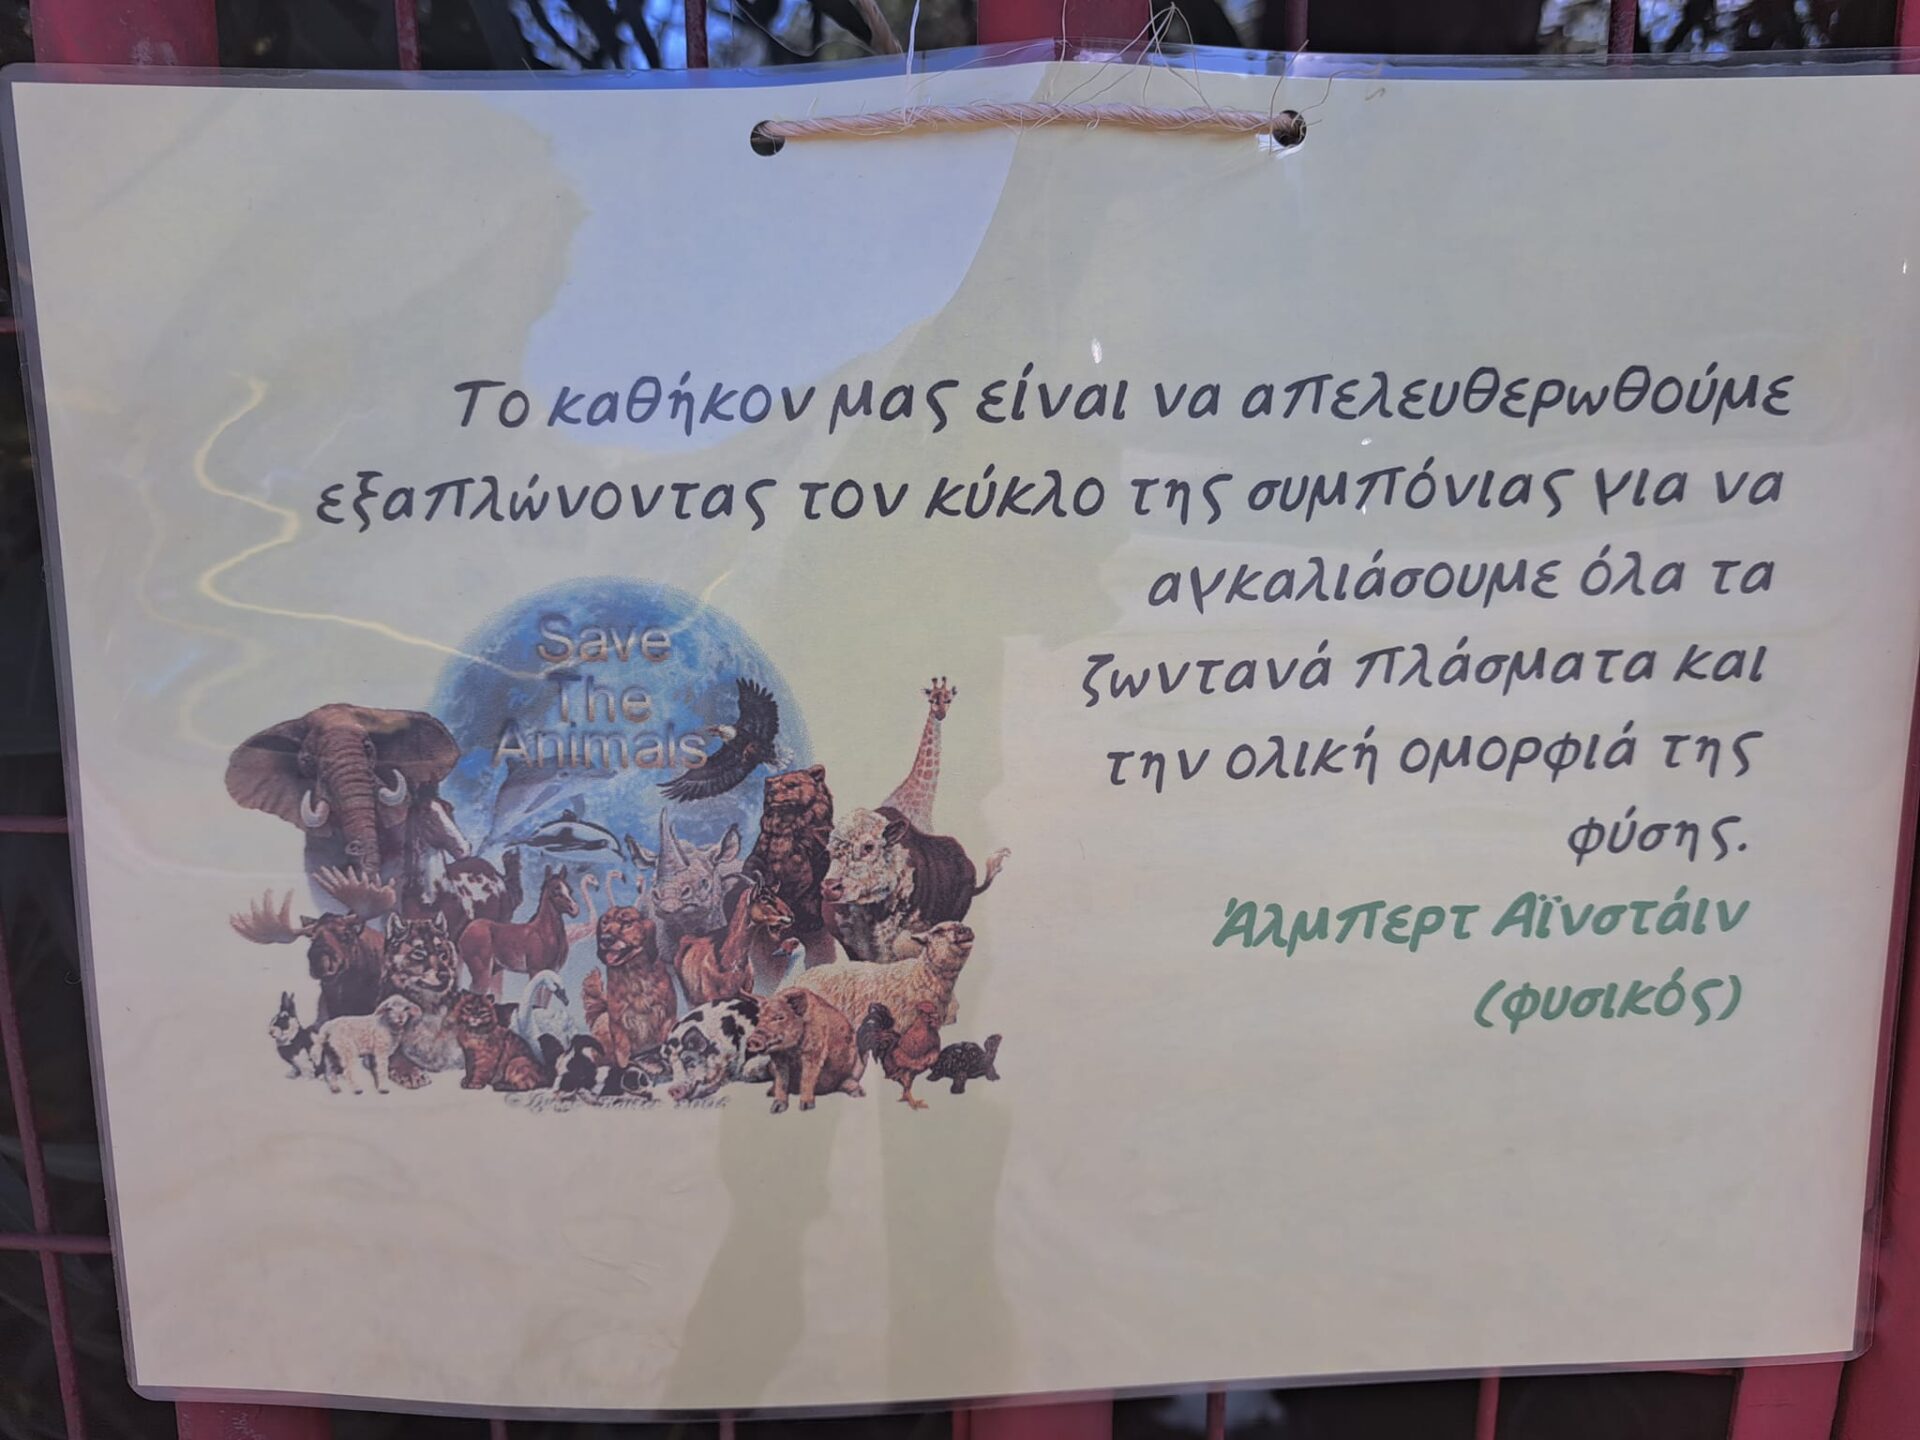 Το καθήκον μας είναι να απελευθερωθούμε
εξαπλώνοντας τον κύκλο της συμπόνιας για να
αγκαλιάσουμε όλα τα
ζωντανά πλάσματα και
την ολική ομορφιά της
φύσης.
Άλμπερτ Αϊνστάιν
(φυσικός)
Save
The
Animals